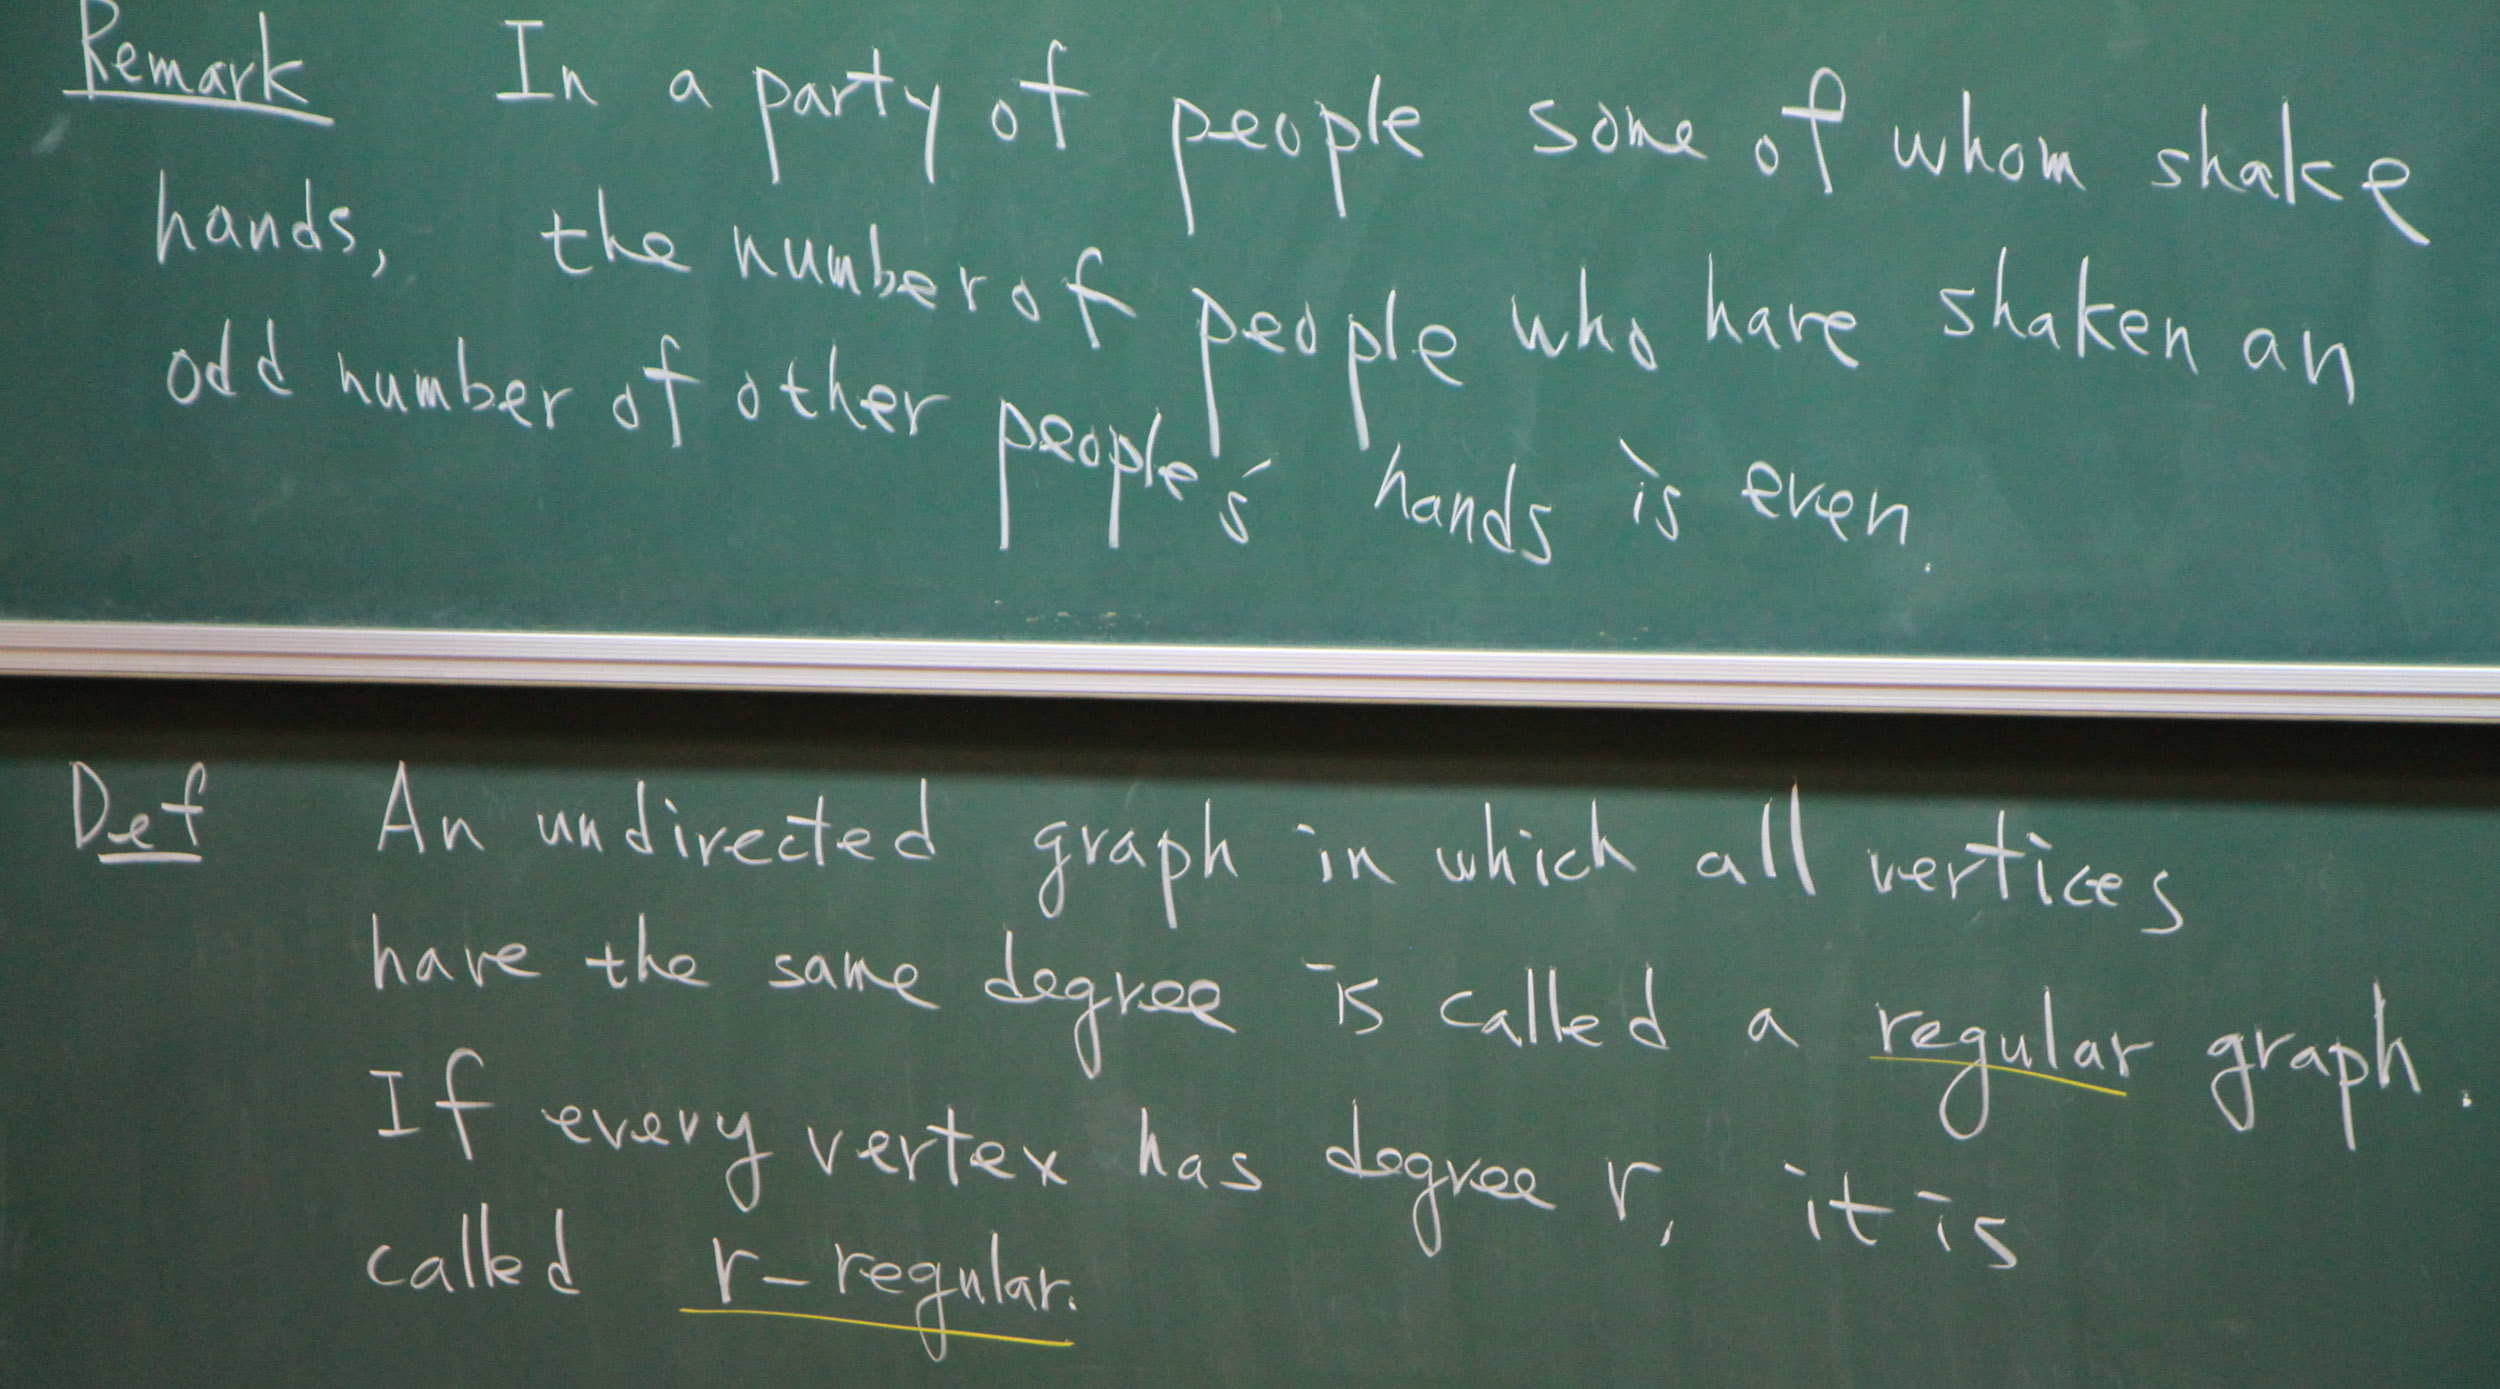 Remark In a party of people some of whom shake
hands, the number of people who have shaken an
odd number of other people's hands is even.
Def An undirected graph in which all vertices
have the same degree is called a regular graph.
If every vertex has degree r, it is
called r-regular.